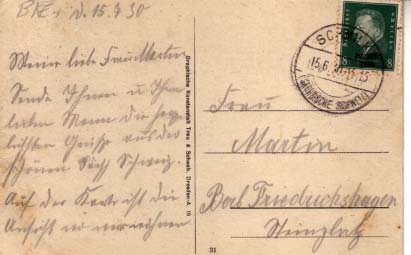 d. 15.7.30
Meine liebe Frau Martin
Sende Ihnen u Ihrem
lieben Mann die herz
lichsten Grüße aus der
schönen Sächs Schweiz.
Auf der Karte ist die
Ansicht wo wir wohnen
Graphische Kunstanstalt Trau & Schwab, Dresden-A. 19
31
15.6.
(SÄCHSISCHE SCHWEIZ)
8
Frau
Martin
Berl Friedrichshagen
Steinplatz